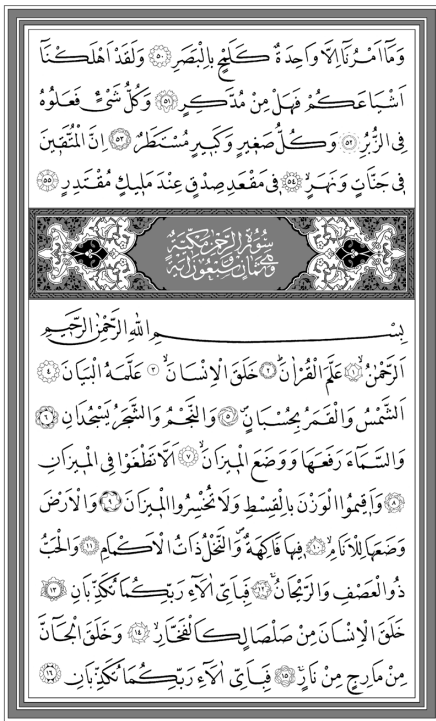 وَمَٓا اَمْرُنَٓا اِلَّا وَاحِدَةٌ كَلَمْحٍ بِالْبَصَرِ ﴿٥٠﴾ وَلَقَدْ اَهْلَكْنَٓا
اَشْيَاعَكُمْ فَهَلْ مِنْ مُدَّكِرٍ ﴿٥١﴾ وَكُلُّ شَيْءٍ فَعَلُوهُ
فِي الزُّبُرِ ﴿٥٢﴾ وَكُلُّ صَغِيرٍ وَكَبِيرٍ مُسْتَطَرٌ ﴿٥٣﴾ اِنَّ الْمُتَّقِينَ
فِي جَنَّاتٍ وَنَهَرٍ ﴿٥٤﴾ فِي مَقْعَدِ صِدْقٍ عِنْدَ مَلِيكٍ مُقْتَدِرٍ ﴿٥٥﴾
سُورَةُ الرَّحْمٰنِ مَكِّيَّةٌ
وَهِيَ ثَمَانٍ وَسَبْعُونَ اٰيَةً
بِسْمِ اللّٰهِ الرَّحْمٰنِ الرَّحِيمِ
اَلرَّحْمٰنُ ﴿١﴾ عَلَّمَ الْقُرْاٰنَ ﴿٢﴾ خَلَقَ الْاِنْسَانَ ﴿٣﴾ عَلَّمَهُ الْبَيَانَ ﴿٤﴾
اَلشَّمْسُ وَالْقَمَرُ بِحُسْبَانٍ ﴿٥﴾ وَالنَّجْمُ وَالشَّجَرُ يَسْجُدَانِ ﴿٦﴾
وَالسَّمَٓاءَ رَفَعَهَا وَوَضَعَ الْمِيزَانَ ﴿٧﴾ اَلَّا تَطْغَوْا فِي الْمِيزَانِ
﴿٨﴾ وَاَقِيمُوا الْوَزْنَ بِالْقِسْطِ وَلَا تُخْسِرُوا الْمِيزَانَ ﴿٩﴾ وَالْاَرْضَ
وَضَعَهَا لِلْاَنَامِ ﴿١٠﴾ فِيهَا فَاكِهَةٌ وَالنَّخْلُ ذَاتُ الْاَكْمَامِ ﴿١١﴾ وَالْحَبُّ
ذُو الْعَصْفِ وَالرَّيْحَانُ ﴿١٢﴾ فَبِاَيِّ اٰلَٓاءِ رَبِّكُمَا تُكَذِّبَانِ ﴿١٣﴾
خَلَقَ الْاِنْسَانَ مِنْ صَلْصَالٍ كَالْفَخَّارِ ﴿١٤﴾ وَخَلَقَ الْجَٓانَّ
مِنْ مَارِجٍ مِنْ نَارٍ ﴿١٥﴾ فَبِاَيِّ اٰلَٓاءِ رَبِّكُمَا تُكَذِّبَانِ ﴿١٦﴾